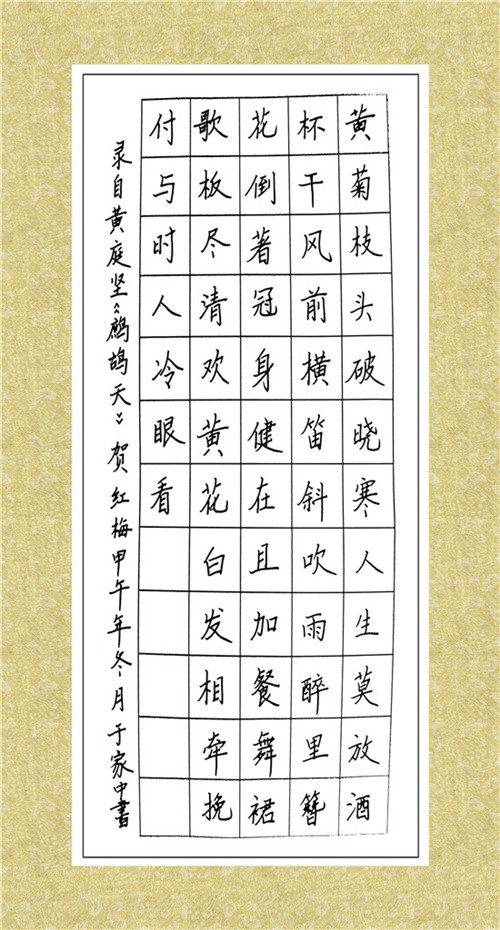 黄菊枝头破晓寒人生莫放酒
杯干风前横笛斜吹雨醉里簪
花倒著冠身健在且加餐舞裙
歌板尽清欢黄花白发相牵挽
付与时人冷眼看
录自黄庭坚《鹧鸪天》贺红梅甲午年冬月于家中書